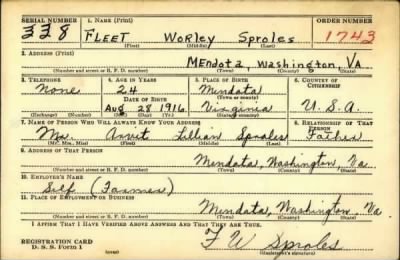 SERIAL NUMBER 1. NAME (Print) ORDER NUMBER
338 FLEET Worley Sproles 1743
(First) (Middle) (Last)
2. ADDRESS (Print)
MEndota, Washington, VA
(Number and street or R. F. D. number) (Town) (County) (State)
3. TELEPHONE 4. AGE IN YEARS 5. PLACE OF BIRTH 6. COUNTRY OF CITIZENSHIP
None 24 Mendota
DATE OF BIRTH (Town or county)
Aug 28 1916 Virginia U.S.A.
(Exchange) (Number) (Mo.) (Day) (Yr.) (State or country)
7. NAME OF PERSON WHO WILL ALWAYS KNOW YOUR ADDRESS 8. RELATIONSHIP OF THAT PERSON
Lillian Sproles Father
(Mr., Mrs., Miss) (First) (Middle) (Last)
9. ADDRESS OF THAT PERSON
Mendota, Washington, Va.
(Number and street or R. F. D. number) (Town) (County) (State)
10. EMPLOYER'S NAME
Self (Farmer)
11. PLACE OF EMPLOYMENT OR BUSINESS
Mendota, Washington, Va
(Number and street or R. F. D. number) (Town) (County) (State)
I AFFIRM THAT I HAVE VERIFIED ABOVE ANSWERS AND THAT THEY ARE TRUE.
REGISTRATION CARD F W Sproles
D. S. S. Form 1 (over) (Registrant's signature)